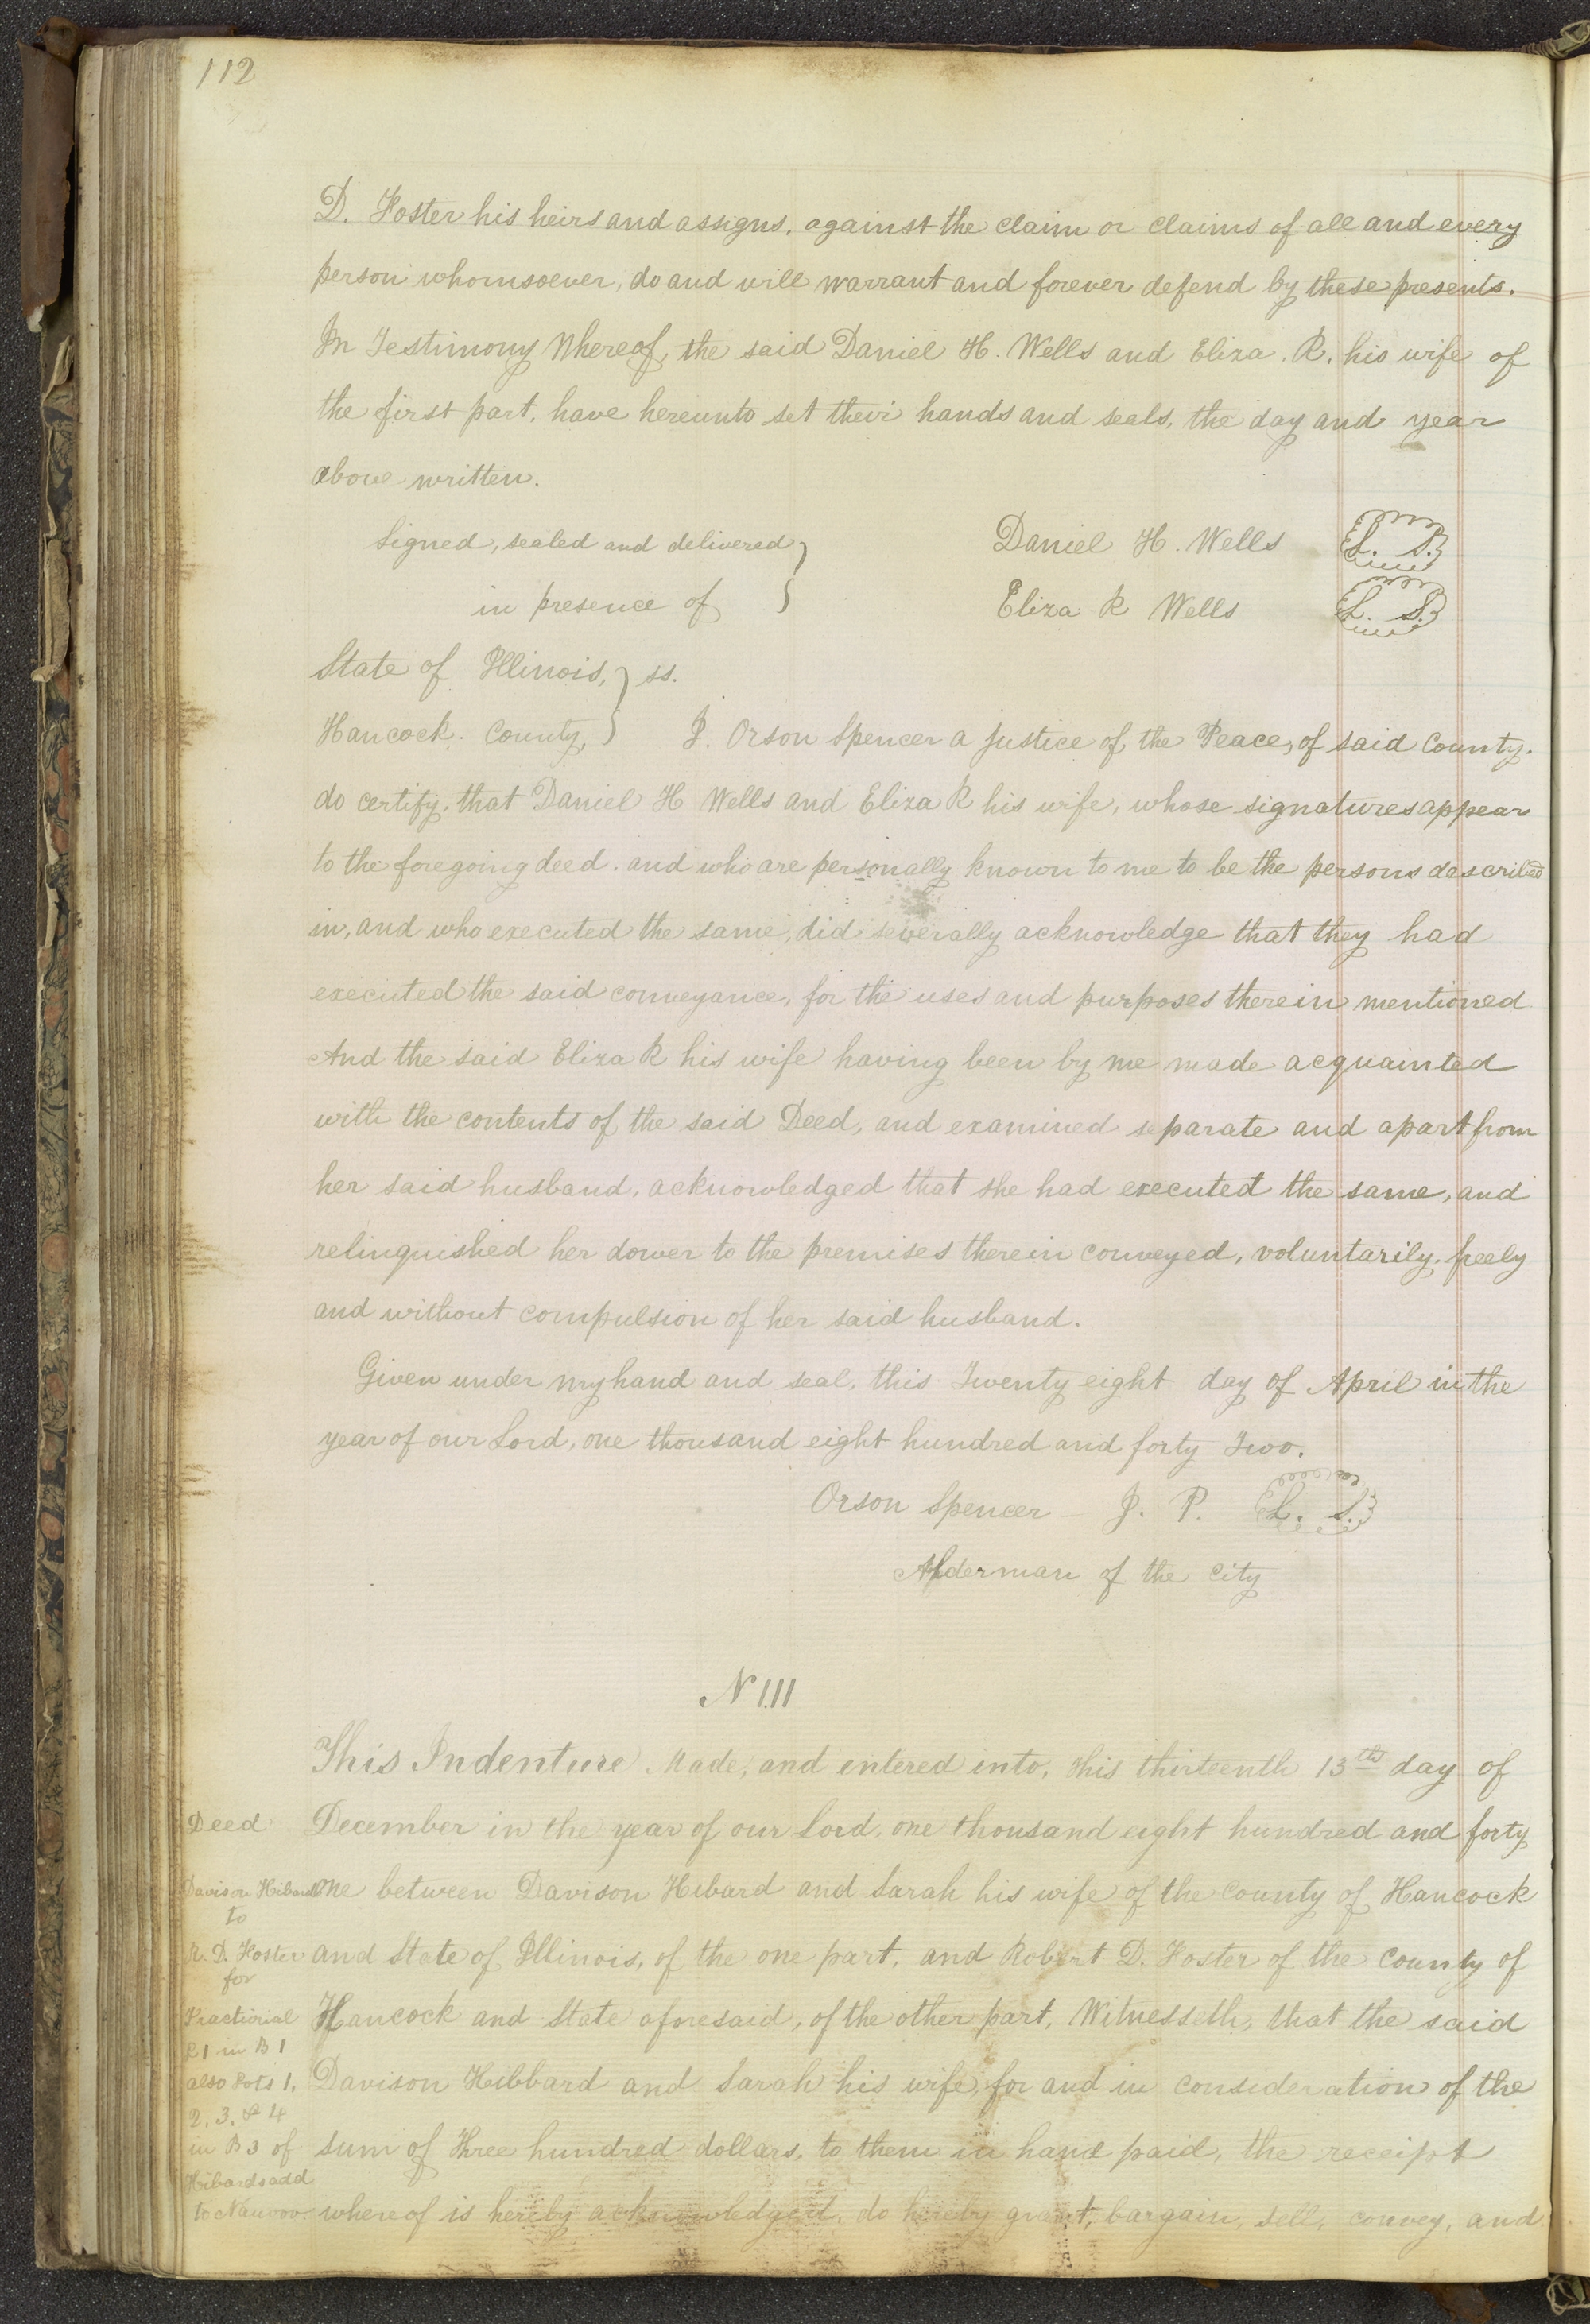 112
D. Foster his heirs and assigns, against the claim or claims of all and every
person whomsoever, do and will warrant and forever defend by these presents.
In Testimony Whereof, the said Daniel H. Wells and Eliza. R. his wife of
the first part, have hereunto set their hands and seals, the day and year
above written.
Signed, sealed and delivered } Daniel H. Wells L. S.
in presence of } Eliza R Wells L. S.
State of Illinois, } ss.
Hancock. County, } I. Orson Spencer a Justice of the Peace, of said County.
do certify, that Daniel H Wells and Eliza R his wife, whose signatures appear
to the foregoing deed. and who are personally known to me to be the persons described
in, and who executed the same, did severally acknowledge that they had
executed the said conveyance, for the uses and purposes therein mentioned
And the said Eliza R his wife having been by me made acquainted
with the contents of the said Deed, and examined separate and apart from
her said husband, acknowledged that she had executed the same, and
relinquished her dower to the premises therein conveyed, voluntarily. freely
and without compulsion of her said husband.
Given under my hand and seal, this Twenty eight day of April in the
year of our Lord, one thousand eight hundred and forty Two.
Orson Spencer – J. P. L. S.
Alderman of the City
N 111
This Indenture Made, and entered into, this thirteenth 13th day of
December in the year of our Lord, one thousand eight hundred and forty
one between Davison Hibard and Sarah his wife of the County of Hancock
and State of Illinois, of the one part, and Robert D. Foster of the County of
Hancock and State aforesaid, of the other part, Witnesseth, that the said
Davison Hibbard and Sarah his wife, for and in consideration of the
sum of Three hundred dollars, to them in hand paid, the receipt
whereof is hereby acknowledged, do hereby grant, bargain, sell, convey, and
Deed
Davison Hibard
to
R. D. Foster
for
Fractional
L 1 in B 1
also Lots 1.
2. 3. & 4
in B 3 of
Hibards add
to Nauvoo